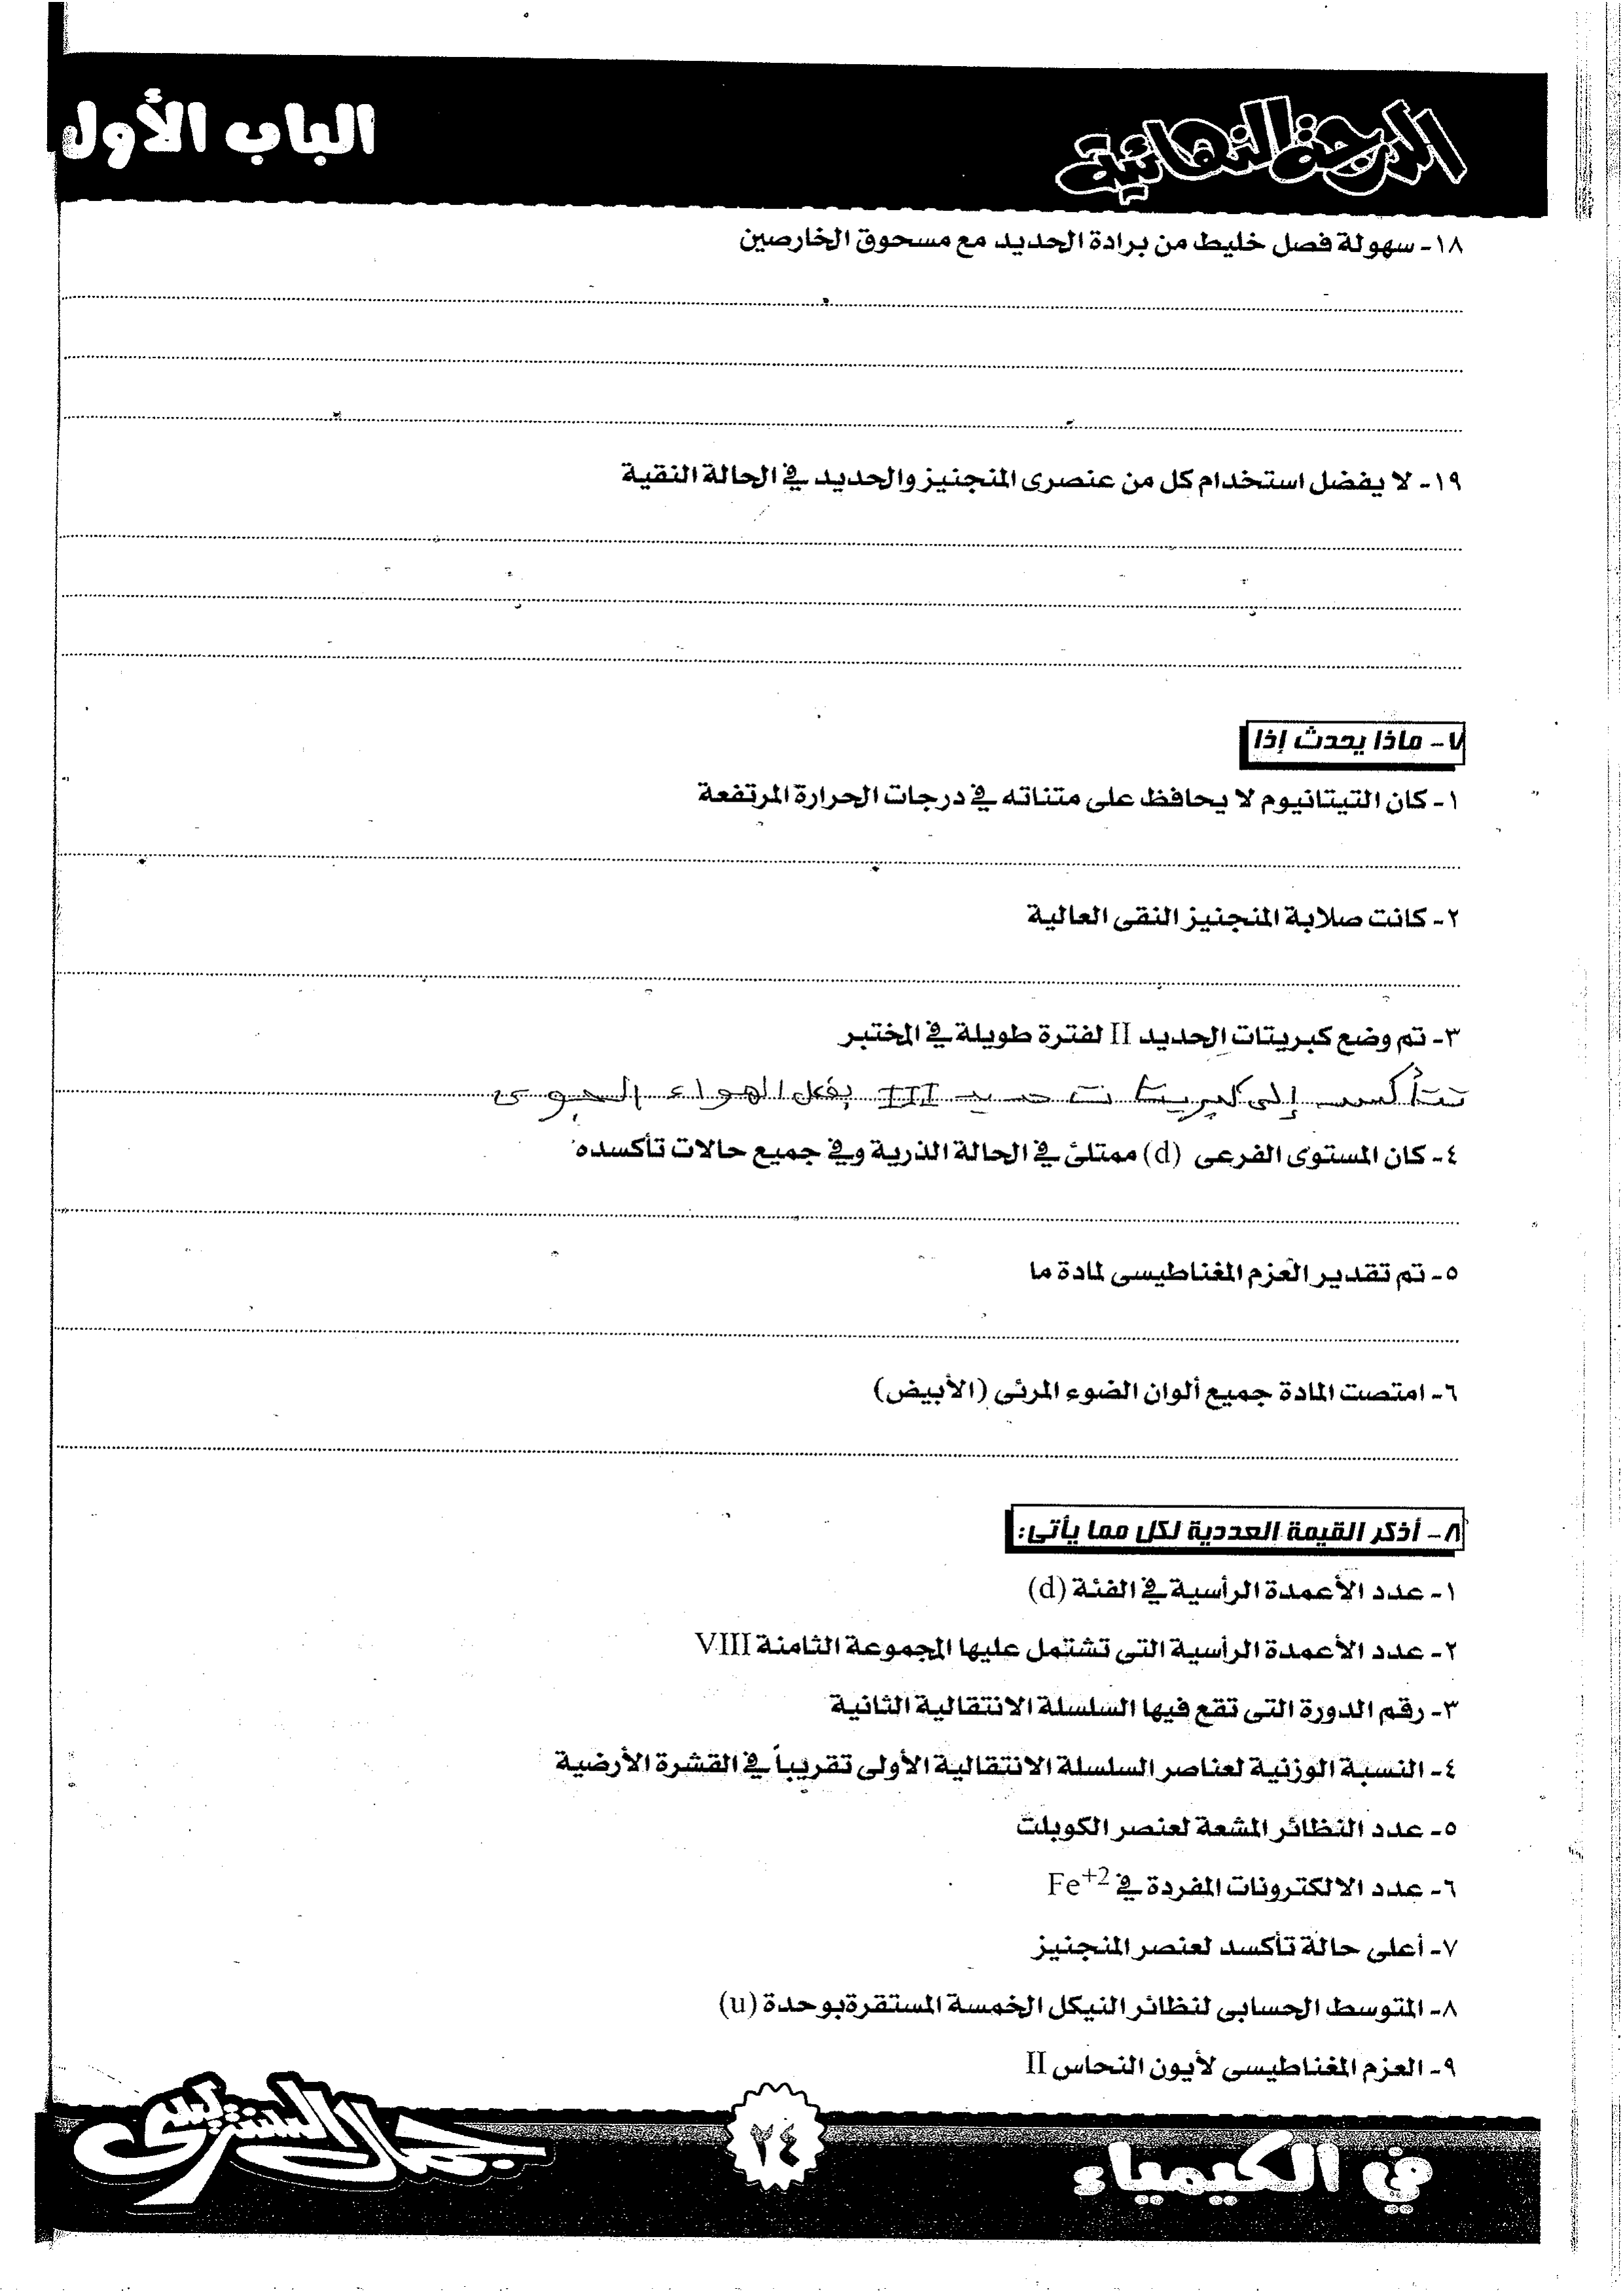 الدرجة النهائية
الباب الأول
١٨- سهولة فصل خليط من برادة الحديد مع مسحوق الخارصين
١٩- لا يفضل استخدام كل من عنصرى المنجنيز والحديد في الحالة النقية
٧- ماذا يحدث إذا
١- كان التيتانيوم لا يحافظ على متناته في درجات الحرارة المرتفعة
٢- كانت صلابة المنجنيز النقى العالية
٣- تم وضع كبريتات الحديد II لفترة طويلة في المختبر
تتأكسد إلى كبريتات حديد III بفعل الهواء الجوى
٤- كان المستوى الفرعى (d) ممتلئ في الحالة الذرية وفي جميع حالات تأكسده
٥- تم تقدير العزم المغناطيسى لمادة ما
٦- امتصت المادة جميع ألوان الضوء المرئى (الأبيض)
٨- أذكر القيمة العددية لكل مما يأتى:
١- عدد الأعمدة الرأسية في الفئة (d)
٢- عدد الأعمدة الرأسية التى تشتمل عليها المجموعة الثامنة VIII
٣- رقم الدورة التى تقع فيها السلسلة الانتقالية الثانية
٤- النسبة الوزنية لعناصر السلسلة الانتقالية الأولى تقريباً في القشرة الأرضية
٥- عدد النظائر المشعة لعنصر الكوبلت
٦- عدد الالكترونات المفردة في Fe+2
٧- أعلى حالة تأكسد لعنصر المنجنيز
٨- المتوسط الحسابى لنظائر النيكل الخمسة المستقرة بوحدة (u)
٩- العزم المغناطيسى لأيون النحاس II
في الكيمياء
٢٤
جمال السنتريسى